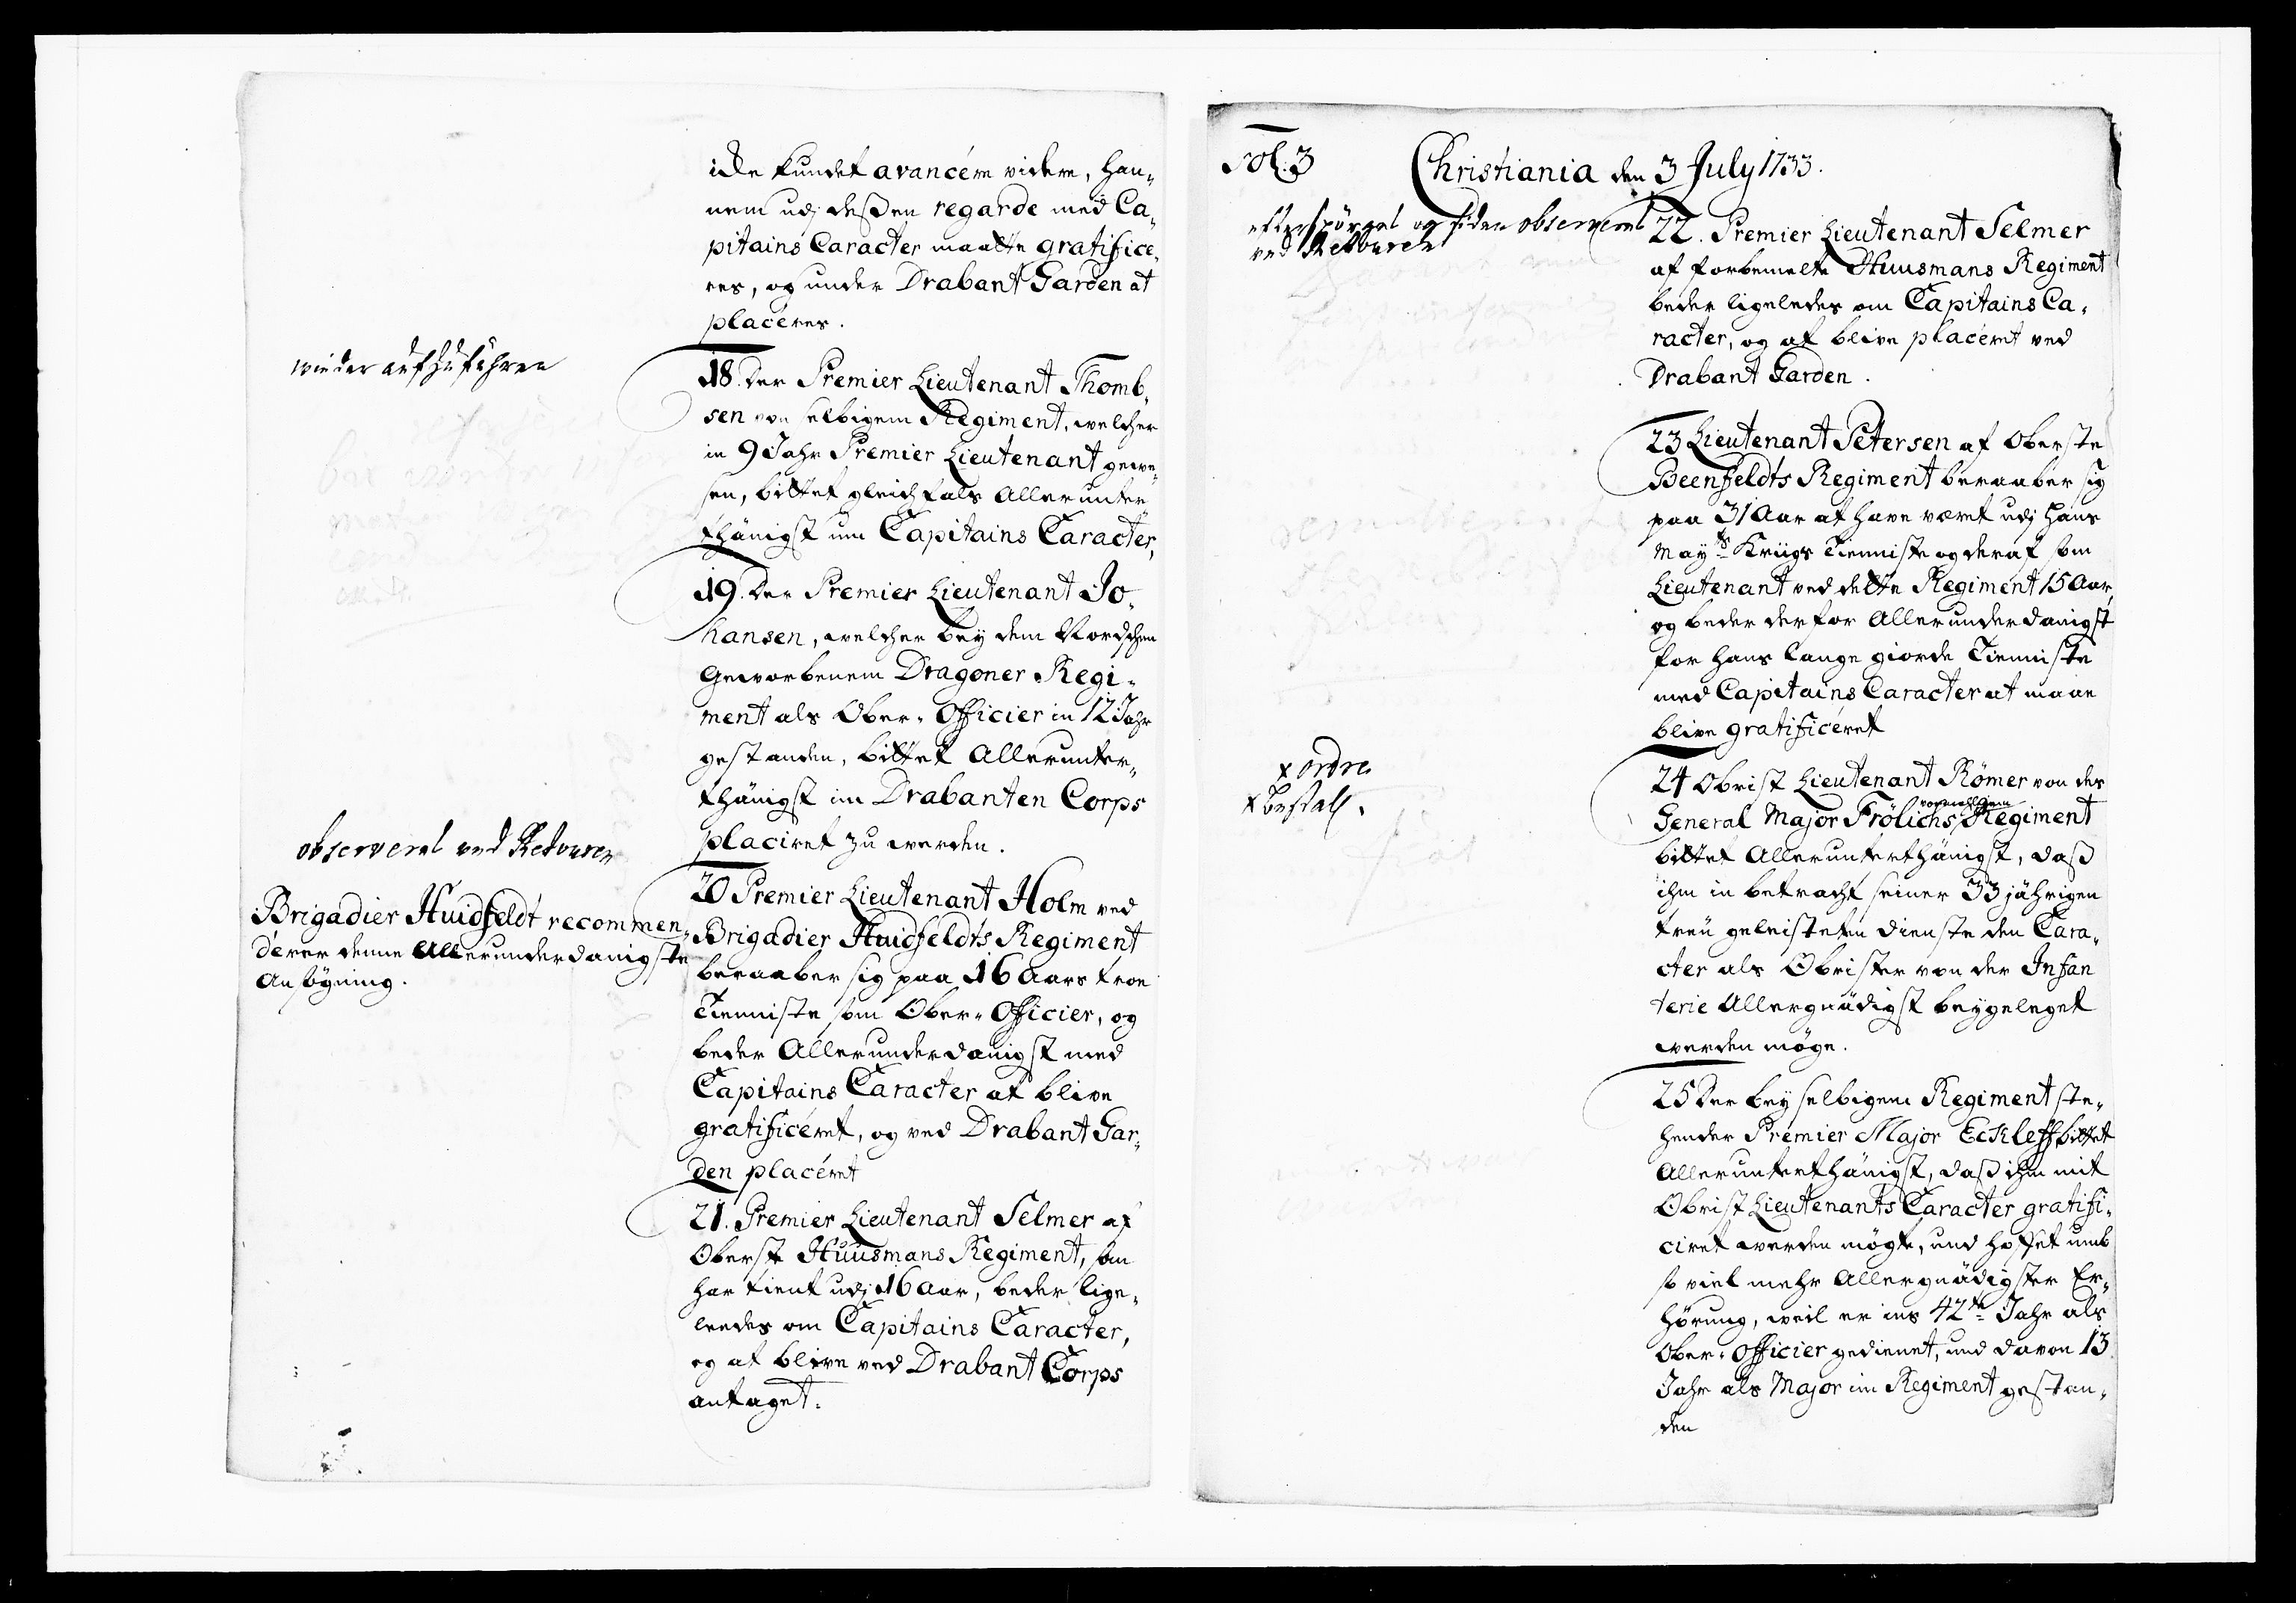 icke kundet avancére videre, han„
nem udj deßen regarde med Ca„
pitains Caracter maatte gratifice„
res, og under Drabant Garden at
placéres.
wieder aufzuführen
18. Der Premier Lieutenant Thomb„
sen von selbigem Regiment, welcher
in 9 Jahr Premier Lieutenant gewe„
sen, bittet gleichfals Allerunter
thänigst um Capitains Caracter,
19. Der Premier Lieutenant Jo„
hansen, welcher bey dem Nordschen
Geworbenem Dragoner Regi„
ment als Ober„ Officier in 12 Jahr
gestanden, bittet Allerunter„
thänigst im Drabanten Corps
placiret zu werden.
observeret ved Retouren
Brigadier Huidfeldt recommen„
dérer denne Allerunderdanigste
Ansøgning.
20 Premier Lieutenant Holm ved
Brigadier Huidfeldts Regiment
beraaber sig paa 16 Aars troe
Tienniste som Ober„ Officier, og
beder Allerunderdanigst med
Capitains Caracter at blive
gratificéret, og ved Drabant Gar„
den placéret
21. Premier Lieutenant Selmer af
Oberst Huusmans Regiment, som
har tient udj 16 Aar, beder lige„
leedes om Capitains Caracter,
og at blive ved Drabant Corps
antaget.
Fol. 3
Christiania den 3 July 1733.
efterspørget og siden observeret
ved Retouren
22. Premier Lieutenant Selmer
af forbemelte Huusmans Regiment
beder ligeledes om Capitains Ca„
racter, og at blive placéret ved
Drabant Garden.
23 Lieutenant Petersen af Oberste
Beenfeldts Regiment beraaber sig
paa 31 Aar at have været udj Hans
Mayts Kriigs Tienniste og deraf som
Lieutenant ved dette Regiment 15 Aar,
og beder derfor Allerunderdanigst
for hans lange giorde Tienniste
med Capitains Caracter at maae
blive gratificéret
x ordre
x bestall.
24 Obrist Lieutenant Römer von des
vormahligem
General Major Frölichs Regiment
bittet Allerunterthänigst, daß
ihm in betracht seiner 33 jährigen
treü geleisteten Dienste den Cara„
cter als Obrister von der Infan
terie Allergnädigst beygeleget
werden möge.
25 Der bey selbigem Regiment ste„
hender Premier Major Eckleff bittet
Allerunterthänigst, daß ihm mit
Obrist Lieutenants Caracter gratifi„
ciret werden mögte, und hoffet umb
so viel mehr Allergnädigster Er„
hörung, weil er ins 42te Jahr als
Ober„ Officier gedienet, und davon 13
Jahr als Major im Regiment gestan„
den